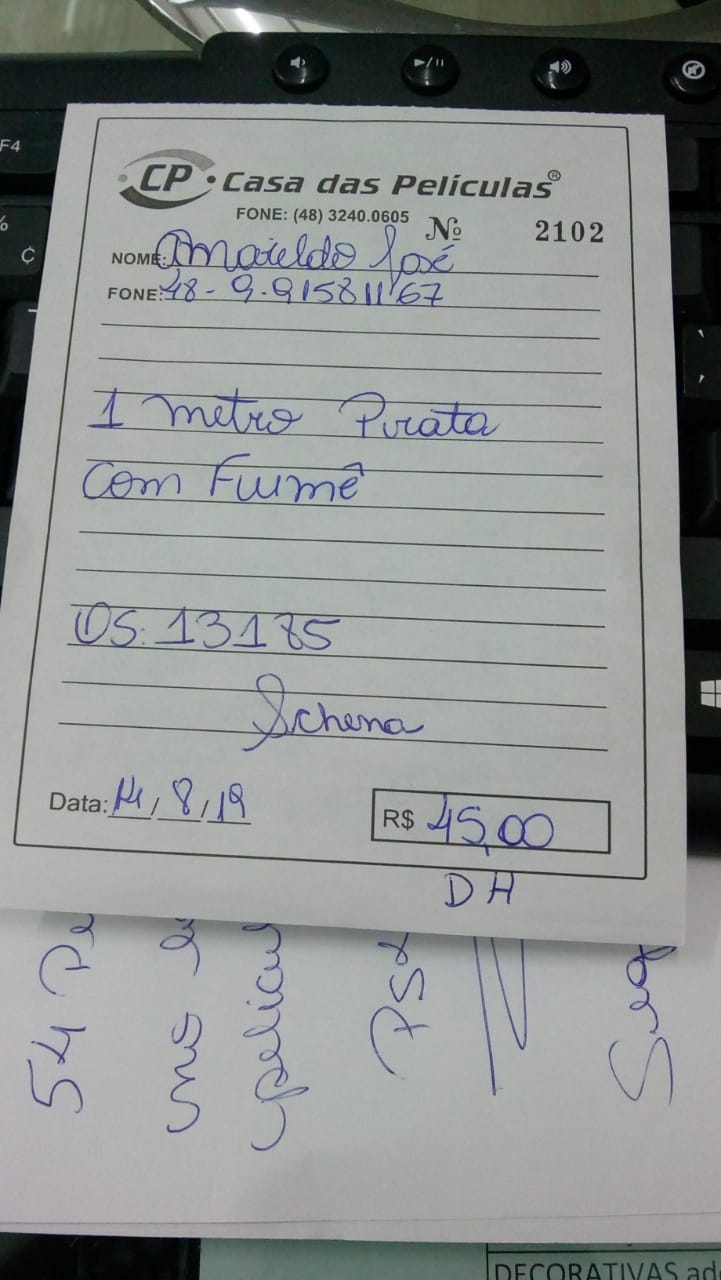 CP • Casa das Películas®
FONE: (48) 3240.0605 Nº 2102
NOME: Amarildo José
FONE: 48-9.91581167
1 metro Purata
Com Fuumê
OS: 13175
Schena
Data: 14/8/19
R$ 45,00
DH
54 Pe
pelicul
F4
%
¢
DECORATIVAS ad